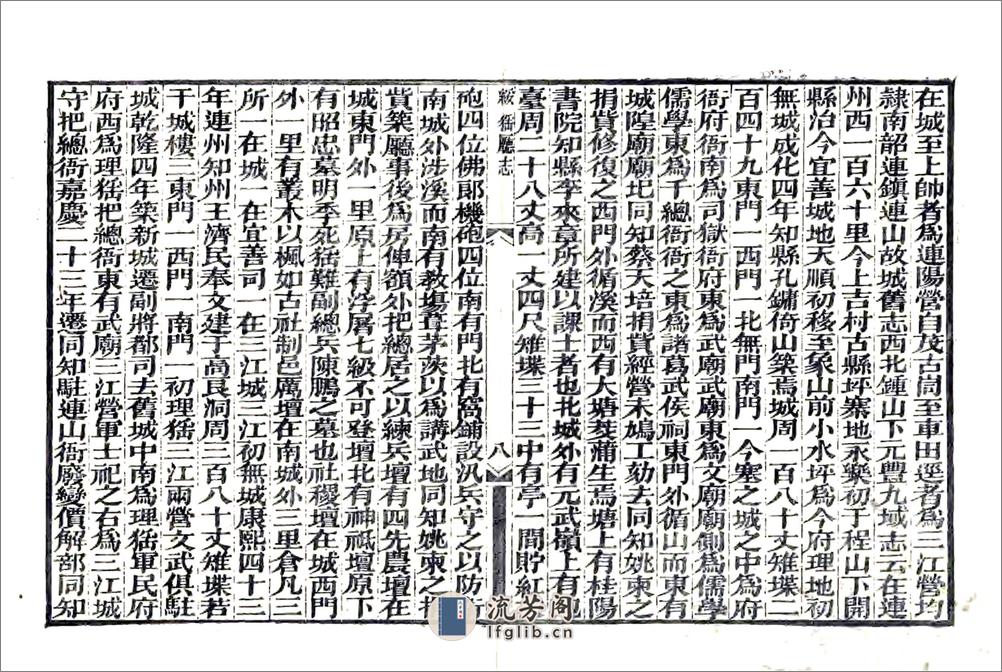 在城至上帥者為連陽營自茂古峝至車田逕者為三江營均
隸南韶連鎮連山故城舊志西北鍾山下元豐九域志云在連
州西一百六十里今上吉村古縣坪寨地永樂初于程山下開
縣治今宜善城地天順初移至象山前小水坪為今府理地初
無城成化四年知縣孔鏞倚山築焉城周一百八十丈雉堞二
百四十九東門一西門一北無門南門一今塞之城之中為府
衙府衙南為司獄衙府東為武廟武廟東為文廟廟側為儒學
儒學東為千總衙衙之東為諸葛武侯祠東門外循山而東有
城隍廟廟圯同知蔡天培捐貲經營未鳩工劾去同知姚柬之
捐貲修復之西門外循溪而西有大塘茭蒲生焉塘上有桂陽
書院知縣李來章所建以課士者也北城外有元武嶺上有砲
臺周二十八丈高一丈四尺雉堞三十三中有亭一間貯紅
綏猺廳志
八
砲四位佛郎機砲四位南有門北有窩鋪設汛兵守之以防
南城外涉溪而南有教塲葺茅茨以為講武地同知姚柬之
貲築廳事後為房俾額外把總居之以練兵壇有四先農壇在
城東門外一里原上有浮屠七級不可登壇北有神祗壇原下
有昭忠墓明季死猺難副總兵陳鵬之墓也社稷壇在城西門
外一里有叢木以楓如古社制邑厲壇在南城外三里倉凡三
所一在城一在宜善司一在三江城三江初無城康熙四十三
年連州知州王濟民奉文建于高良洞周二百八十丈雉堞若
干城樓二東門一西門一南門一初理猺三江兩營文武俱駐
城乾隆四年築新城遷副將都司去舊城中南為理猺軍民府
府西為理猺把總衙東有武廟三江營軍士祀之右為三江城
守把總衙嘉慶二十三年遷同知駐連山衙廢變價解部同知
流芳阁
lfglib.cn